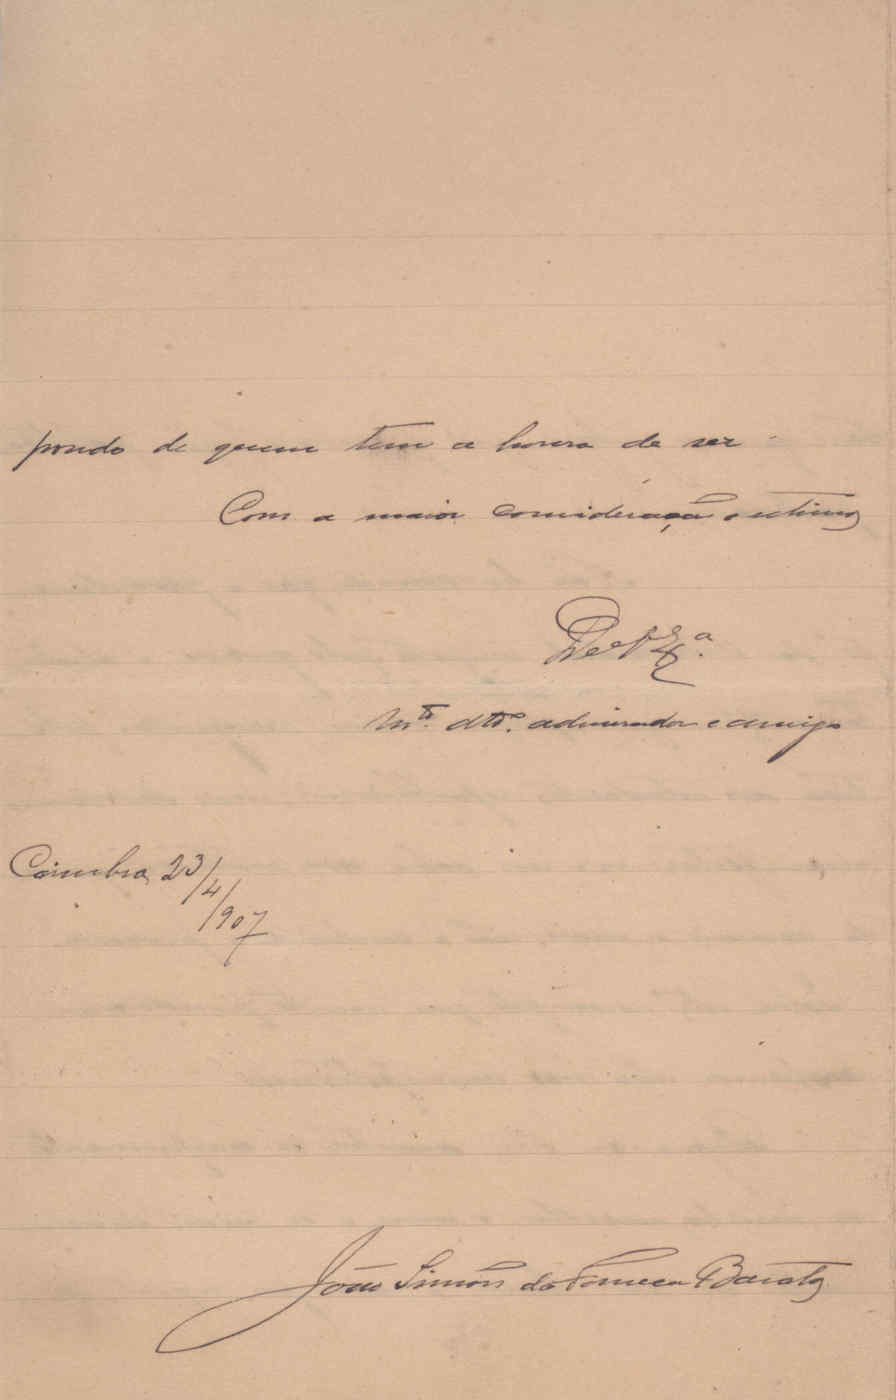 pondo de quem tem a honra de ser
Com a maior consideração e estima
De V. Ex.ª
Mt.º att.º admirador e amigo
Coimbra, 23/4/907
João Simões da Fonseca Barata